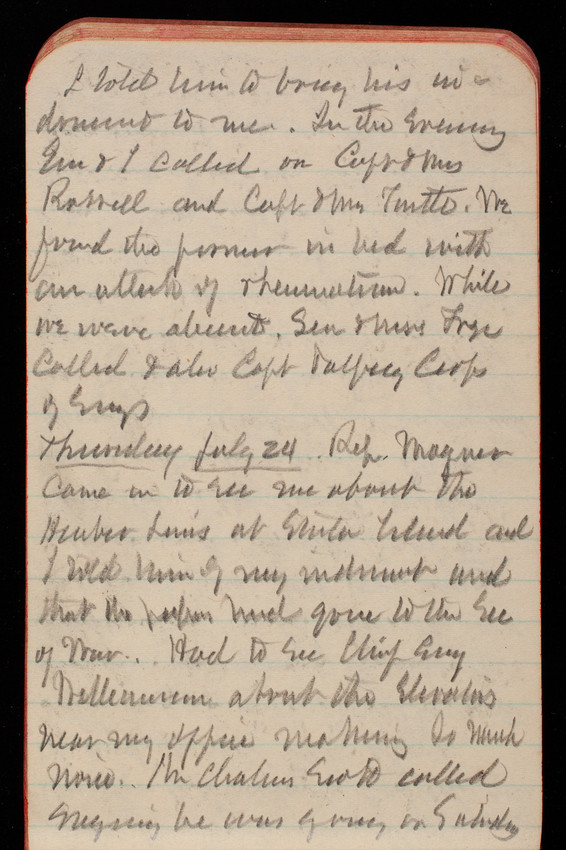 I told him to bring his in-
dorsment to me. In the Evening
Em & I called on Capt & Mrs
Rossell and Capt & Mrs Tuttle. We
found the former in bed with
an attack of rheumatism. While
we were absent, Gen & Miss
called & also Capt Corps
of Engs
Thursday July 24. Rep. Maguer
came in to see me about the
Harbor Lines at Staten Island and
I told him of my indorsment and
that the papers had gone to the Sec
of War.. Had to see Chief Eng
Williamson about the Elevators
near my office making so much
noise. Mr Chalmers Scott called
saying he was going on Saturday